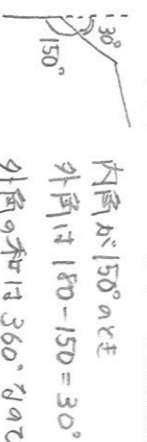 30°
150°
内角が150°のとき
外角は180-150=30°
外角の和は360°なので